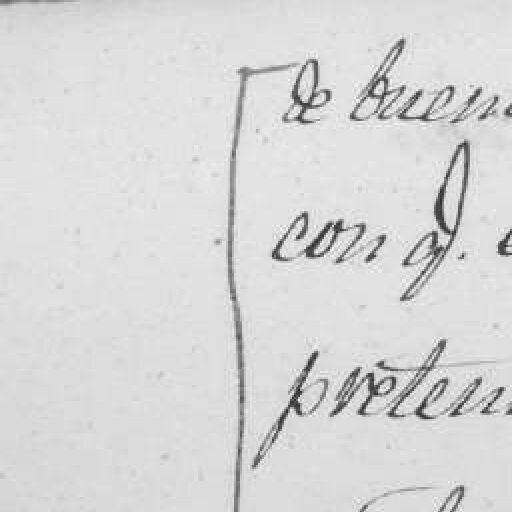 de buen
con q.
preten